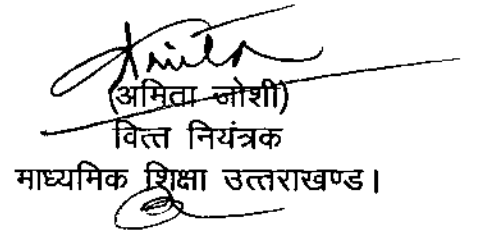 (अमिता जोशी)
वित्त नियंत्रक
माध्यमिक शिक्षा उत्तराखण्ड।